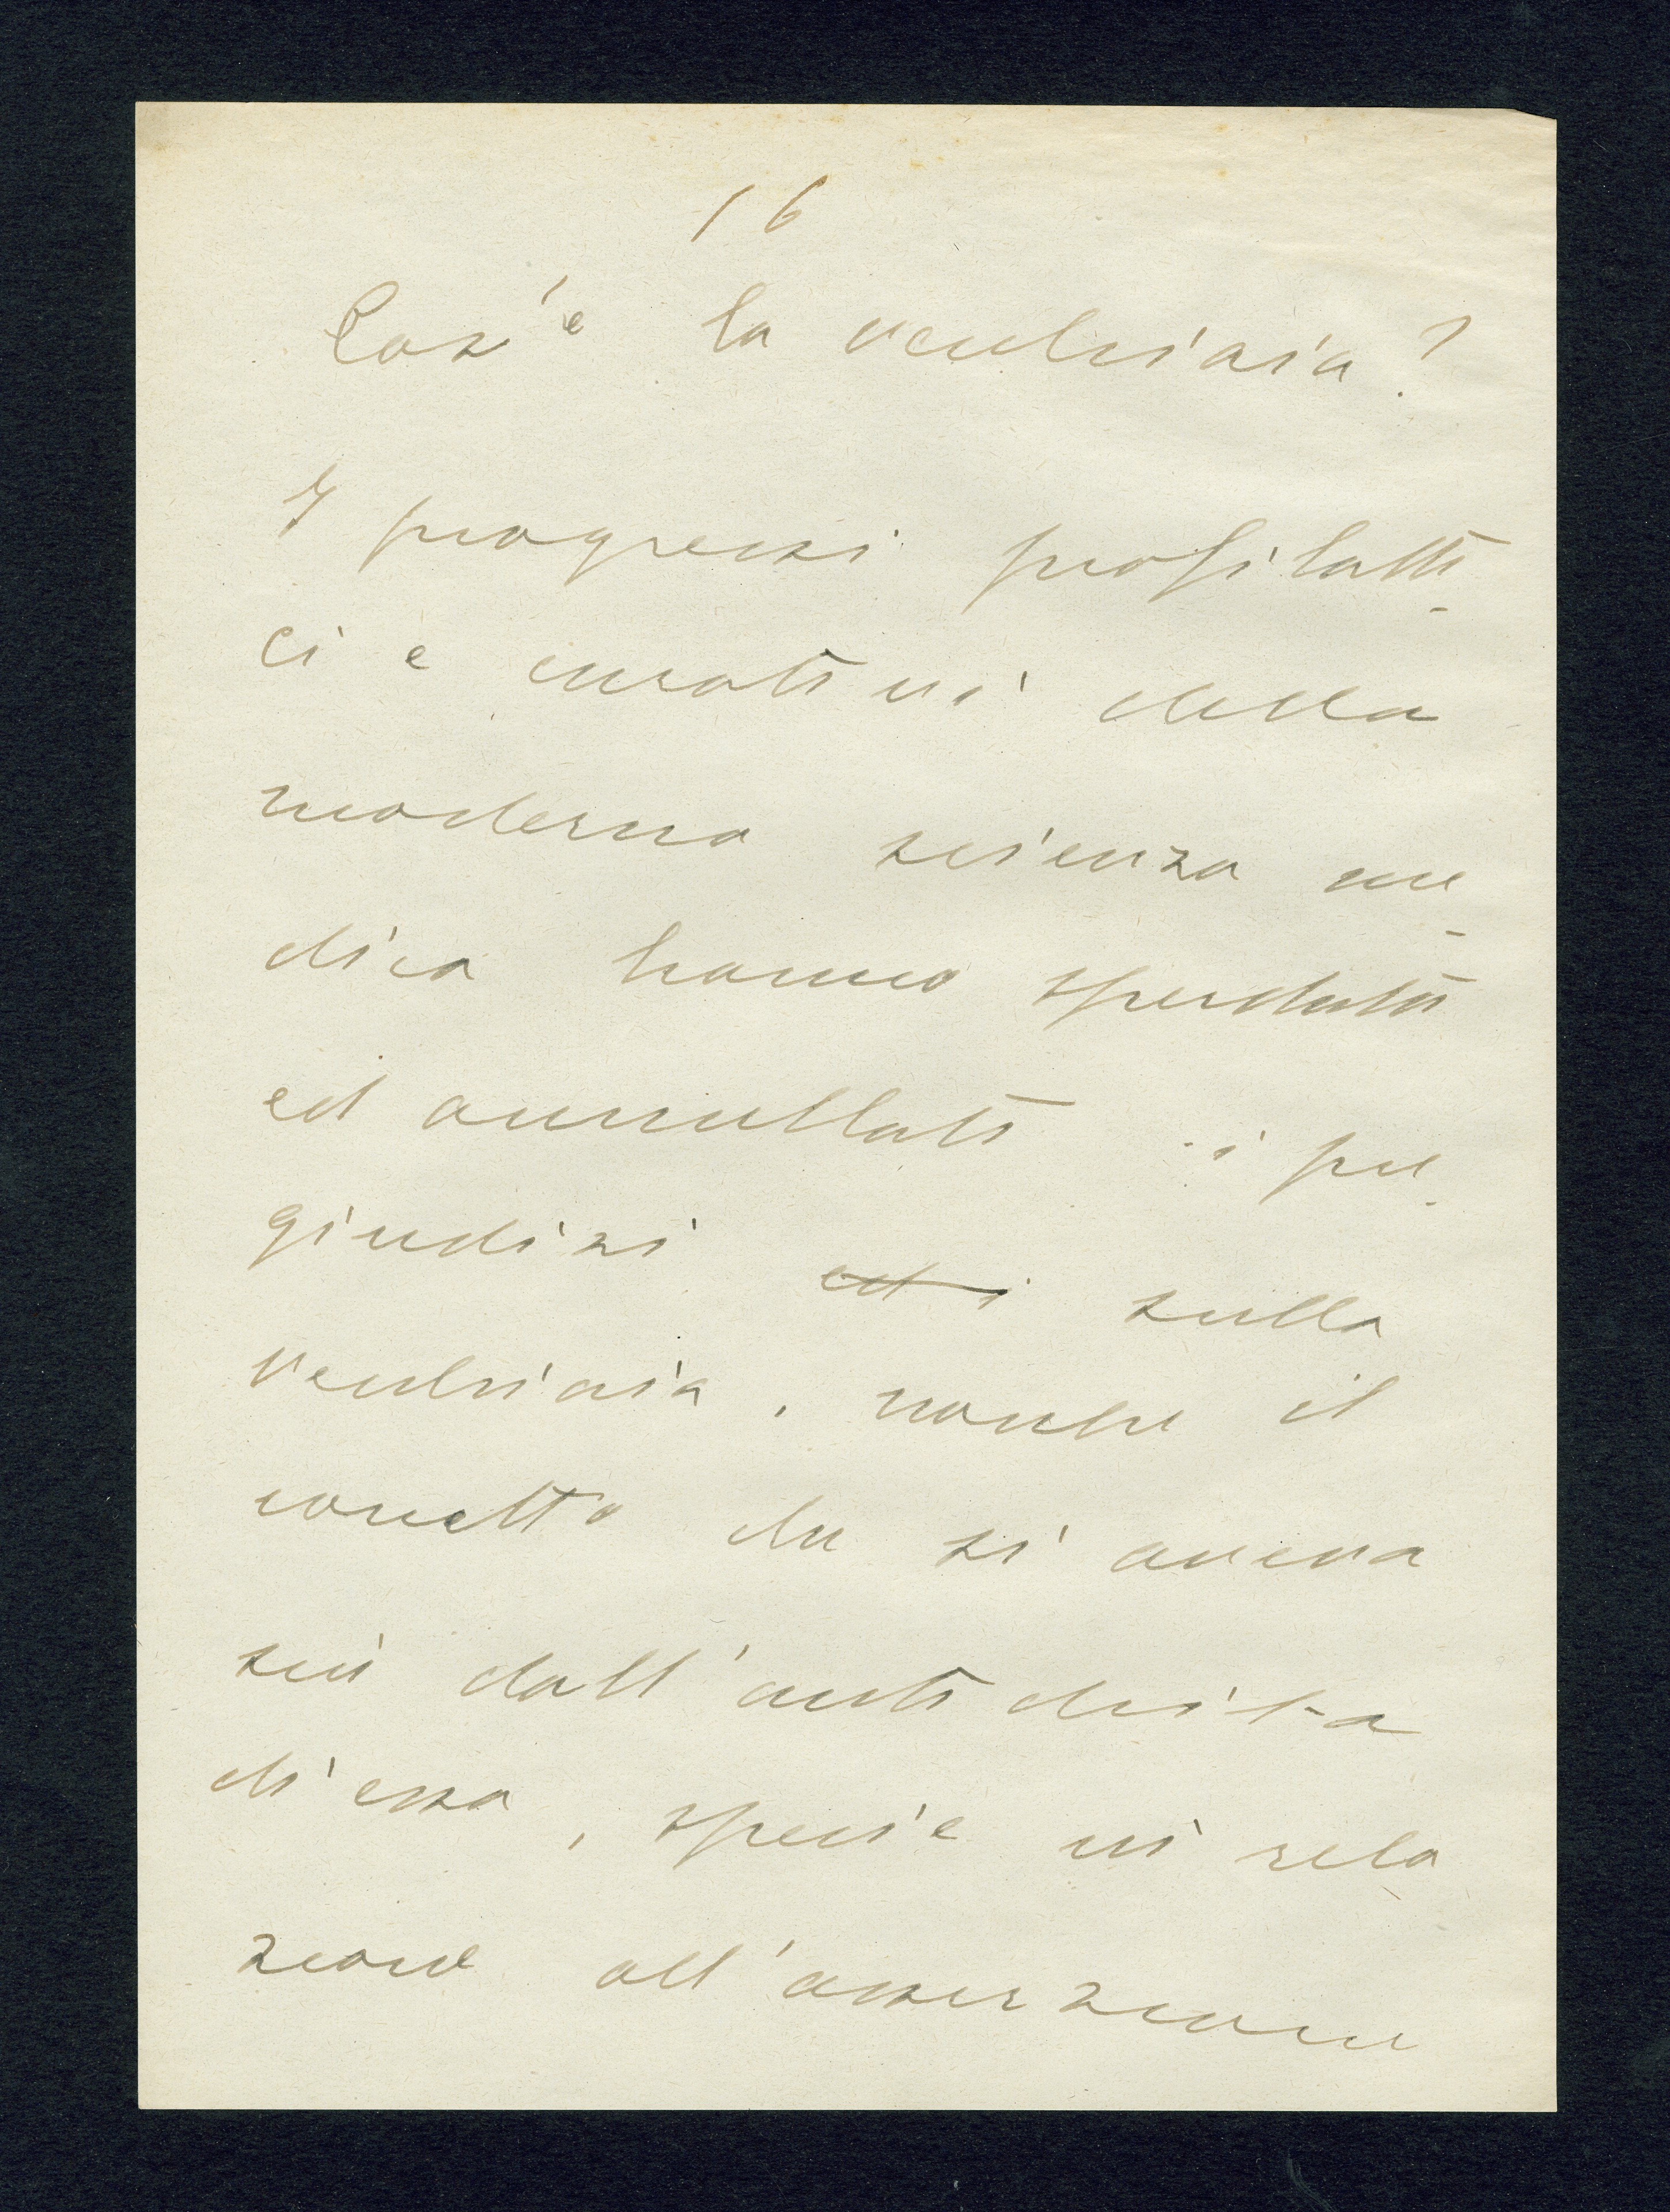 16
Cos'è la vecchiaia?
I progressi profilatti-
ci e curativi della
moderna scienza me-
dica hanno sperduti
ed annullati i pre-
giudizi ed i sulla
vecchiaia, nonché il
concetto che si aveva
sin dall'antichità
di essa, specie in rela
zione all'asserzione